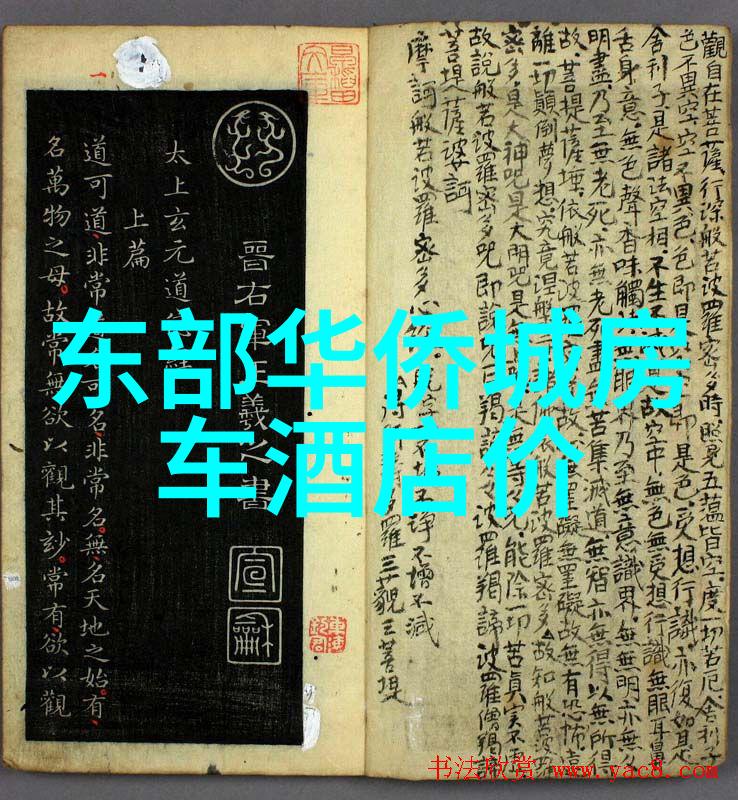 东部华侨城房
车酒店价
觀自在菩薩行深般若波羅密多時照見五蘊皆空度一切苦厄舍利子
色不異空空不異色色即是空即是色受想行識亦復如是
舍利子是諸法空相不生不滅是故空中無色無受想行識無眼耳鼻
舌身意無色聲香味觸法無眼界乃至無意識界無無明亦無
明盡乃至無老死亦無老死盡無苦集滅道無智亦無得以無所得
故菩提薩埵依般若波羅密多故無罣礙無罣礙故無有恐怖遠
離一切顛倒夢想究竟涅槃依般若波羅密多故知般若波
密多是大神咒是大明咒是無等等咒能除一切苦真實不虛
故說般若波羅密多咒即說咒曰羯諦波羅羯諦波羅僧羯諦
菩提薩婆訶
不垢不淨不增不減
摩訶般若波羅密多心經
得阿耨多羅三藐三菩提
晉右軍王羲之書
宣
龢
太上玄元道
上篇
道可道非常可名非常名無名天地之始有
名萬物之母故常無欲以觀其妙常有欲以觀
书法欣赏 www.yac8.com